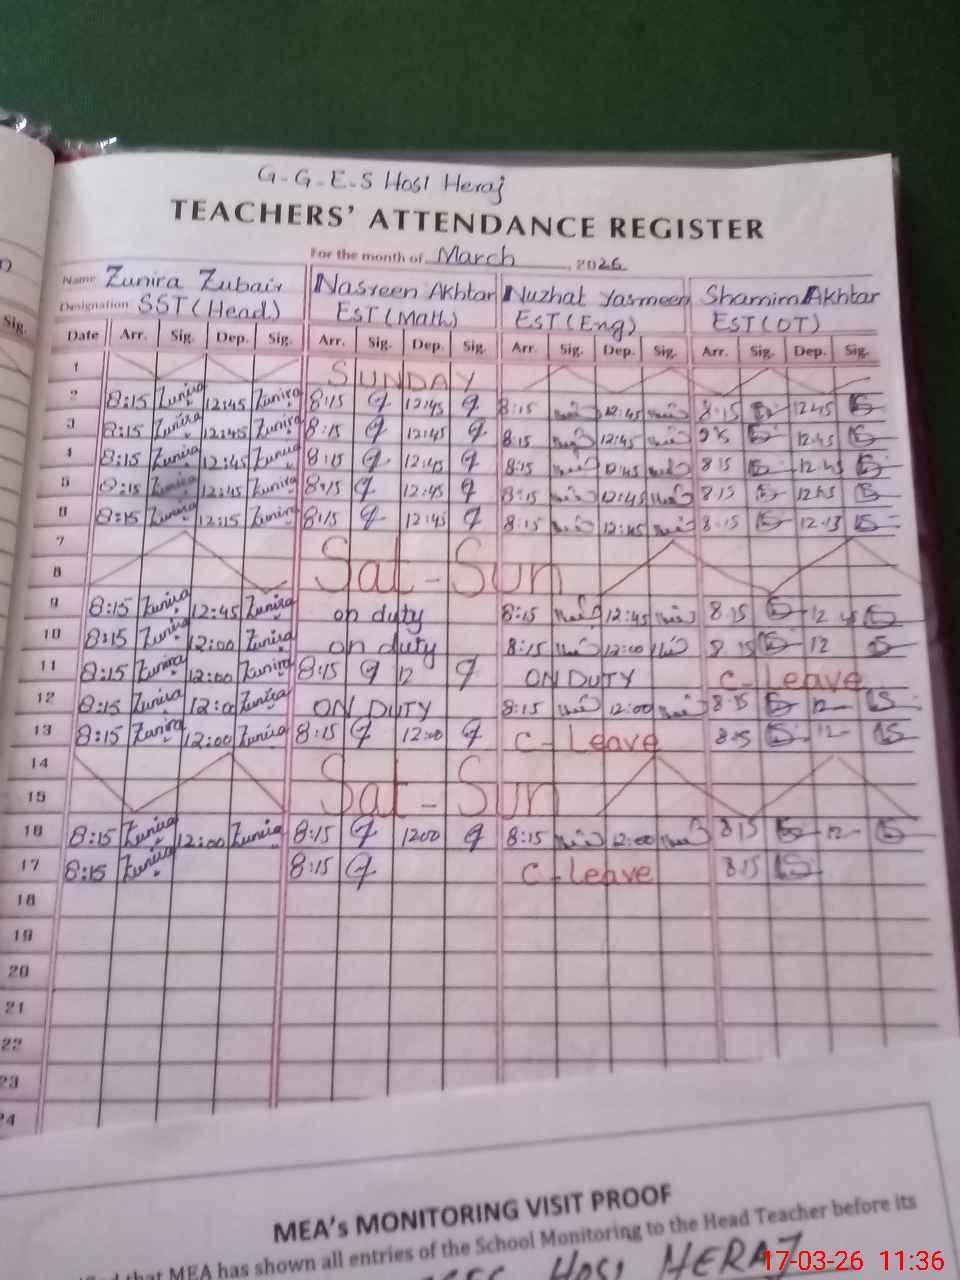 G-G-E-S Hosl Heraj
TEACHERS' ATTENDANCE REGISTER
For the month of March, 2026
Name Zunira Zubair Nasreen Akhtar Nuzhat Yasmeen Shamim Akhtar
Designation SST (Head) EST (Math) EST (Eng) EST (OT)
Sig. Date Arr. Sig. Dep. Sig. Arr. Sig. Dep. Sig. Arr. Sig. Dep. Sig. Arr. Sig. Dep. Sig.
1 SUNDAY
2 8:15 Zunira 12:45 Zunira 8:15 12:45 8:15 12:45 8:15 12:45
3 8:15 Zunira 12:45 Zunira 8:15 12:45 8:15 12:45 12:45
4 8:15 Zunira 12:45 Zunira 8:15 12:45 8:15 12:45 8:15 12:45
5 8:15 Zunira 12:45 Zunira 8:15 12:45 8:15 12:45 8:15
6 8:15 Zunira 12:15 Zunira 8:15 12:45 8:15 12:45 8:15
7 Sat-Sun
8
9 8:15 Zunira 12:45 Zunira on duty 8:15 12:45 8:15 12 45
10 8:15 Zunira 12:00 Zunira on duty 8:15 12:00 8 15 12
11 8:15 Zunira 12:00 Zunira 8:15 12 ON DUTY C-Leave
12 8:15 Zunira 12:00 Zunira ON DUTY 8:15 12:00 8:15 12
13 8:15 Zunira 12:00 Zunira 8:15 12:00 C-Leave 8:15 12
14 Sat-Sun
15
16 8:15 Zunira 12:00 Zunira 8:15 1200 8:15 12:00 8:15 12
17 8:15 Zunira 8:15 C-Leave 8:15
18
19
20
21
22
23
24
MEA's MONITORING VISIT PROOF
that MEA has shown all entries of the School Monitoring to the Head Teacher before its
HOSL HERAJ
17-03-26 11:36